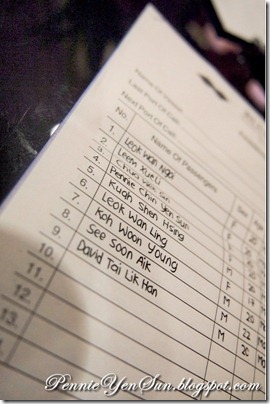 Name Of Vessel
Last Port Of Call:
Next Port Of Call:
No. Name Of Passengers
1. Leok Wan Nga
2.
3. Chua
4. Pennie Chin Yen Sun
5. Kuah Shen Hsing
6. Leok Wan Ling
7. Koh Woon Young
8. See Soon Aik
9. David Tai Lik Han
10.
11.
12.
13.
PennieYenSun.blogspot.com